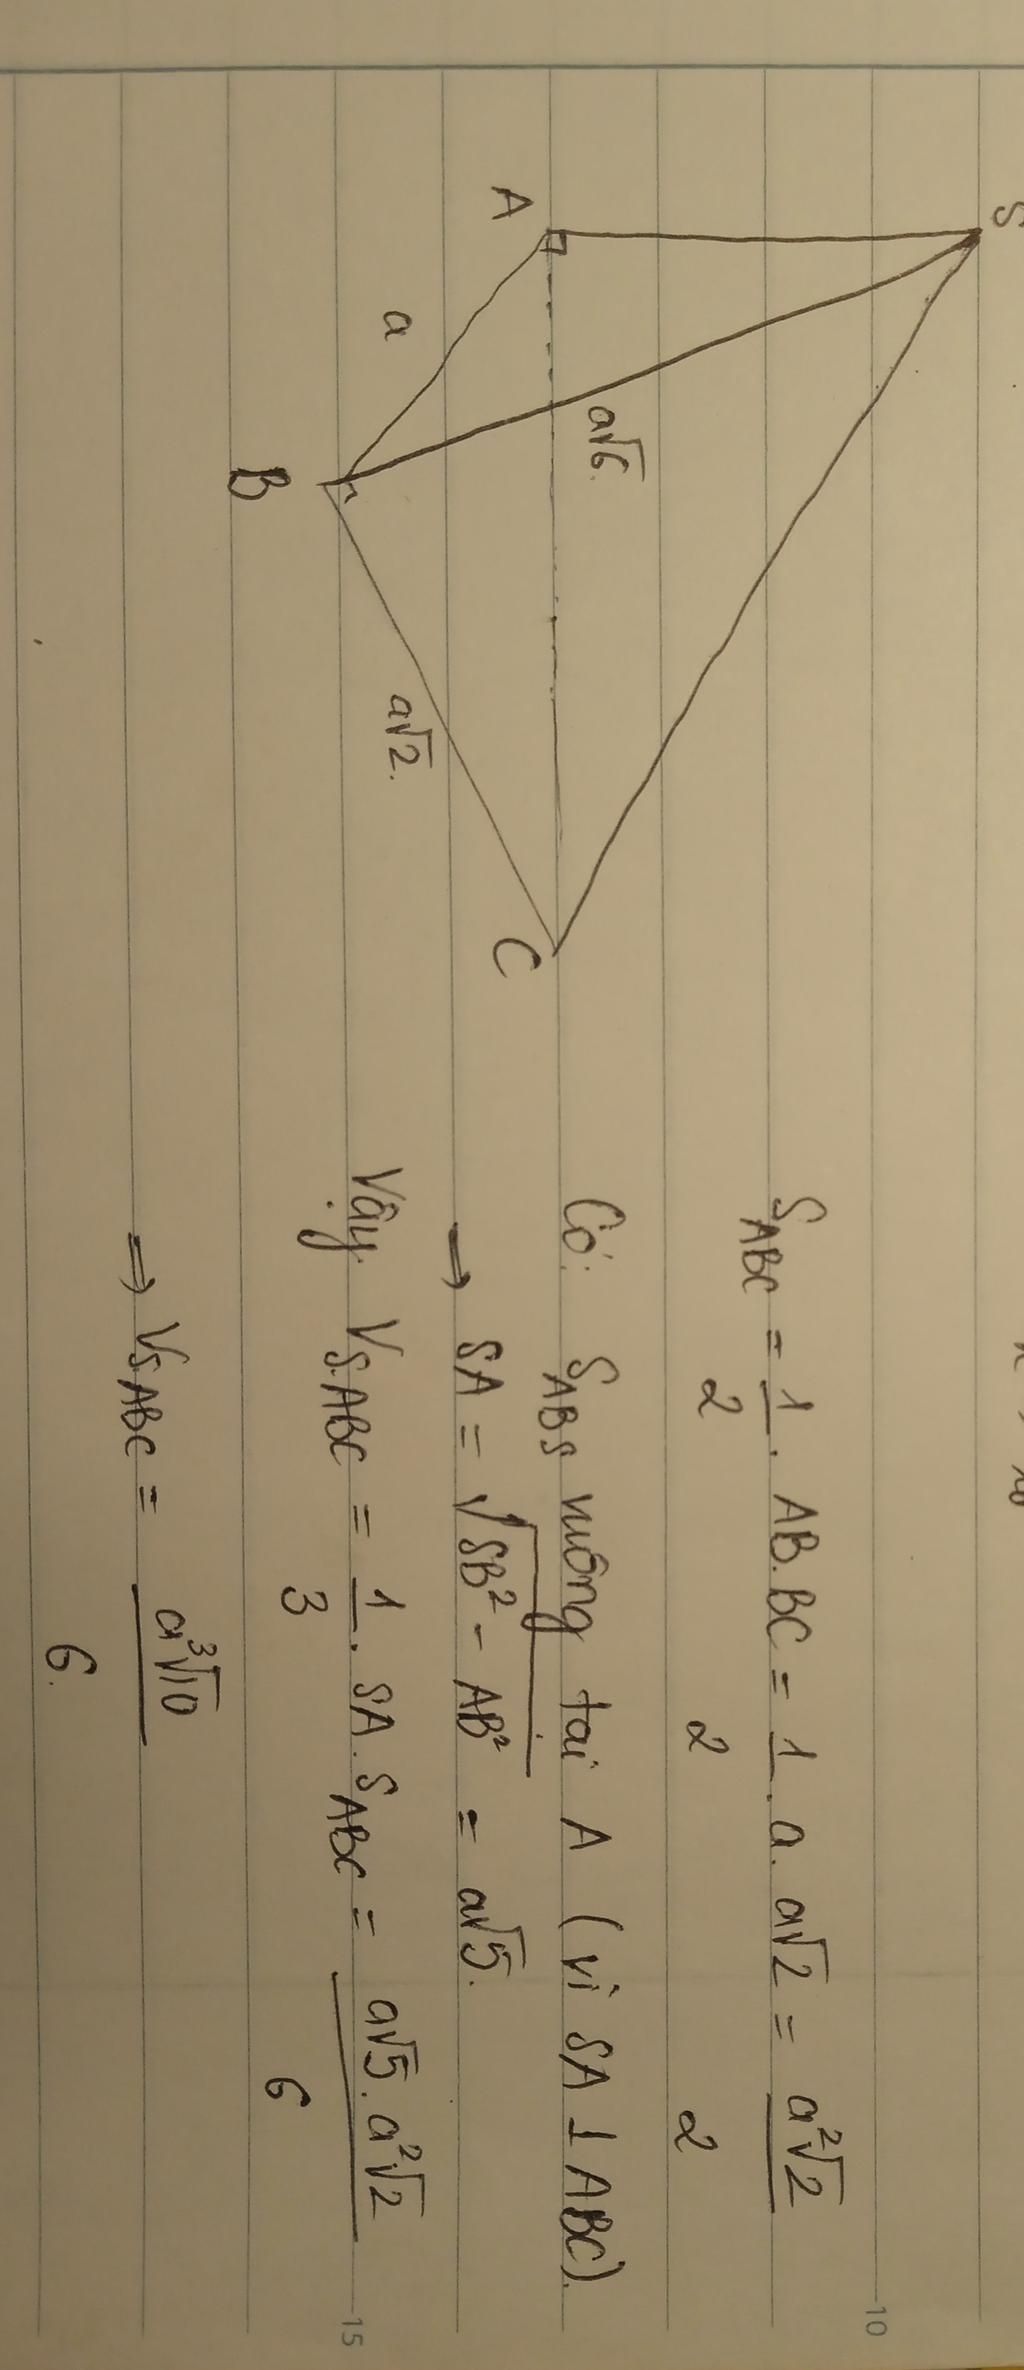 S
A
a
a√6.
B
a√2.
C
S_ABC = 1/2 . AB.BC = 1/2 . a. a√2 = a²√2/2
Có: S_ABS vuông tại A (vì SA ⊥ ABC).
⇒ SA = √(SB² - AB²) = a√5.
Vậy V_S.ABC = 1/3 . SA. S_ABC = a√5. a²√2/6
⇒ V_S.ABC = a³√10/6.
10
15